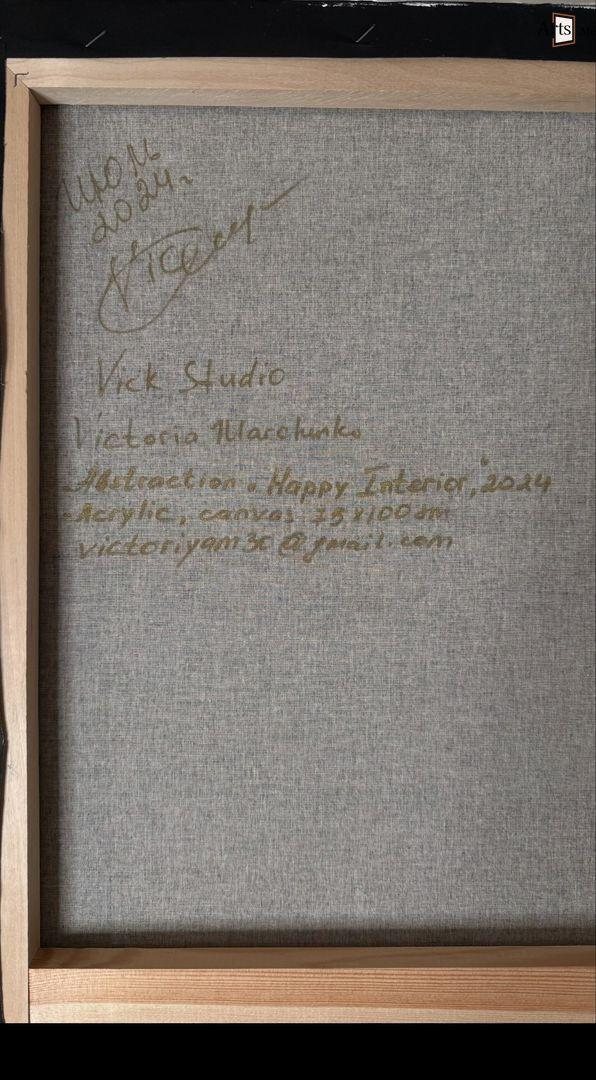 Arts
ИЮЛЬ
2024г.
Vick Studio
Victoria Marchenko
Abstraction „Happy Interior," 2024
Acrylic, canvas 75x100 sm
victoriyam30@gmail.com